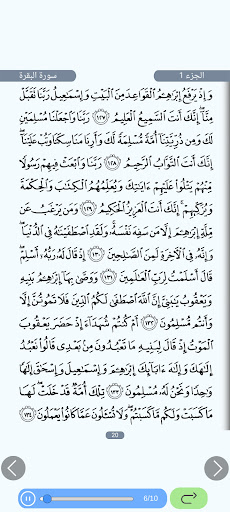 سورة البقرة
الجزء 1
وَإِذْ يَرْفَعُ إِبْرَٰهِـۧمُ ٱلْقَوَاعِدَ مِنَ ٱلْبَيْتِ وَإِسْمَـٰعِيلُ رَبَّنَا تَقَبَّلْ
مِنَّآ ۖ إِنَّكَ أَنتَ ٱلسَّمِيعُ ٱلْعَلِيمُ ١٢٧ رَبَّنَا وَٱجْعَلْنَا مُسْلِمَيْنِ
لَكَ وَمِن ذُرِّيَّتِنَآ أُمَّةً مُّسْلِمَةً لَّكَ وَأَرِنَا مَنَاسِكَنَا وَتُبْ عَلَيْنَآ ۖ
إِنَّكَ أَنتَ ٱلتَّوَّابُ ٱلرَّحِيمُ ١٢٨ رَبَّنَا وَٱبْعَثْ فِيهِمْ رَسُولًا
مِّنْهُمْ يَتْلُوا۟ عَلَيْهِمْ ءَايَـٰتِكَ وَيُعَلِّمُهُمُ ٱلْكِتَـٰبَ وَٱلْحِكْمَةَ
وَيُزَكِّيهِمْ ۚ إِنَّكَ أَنتَ ٱلْعَزِيزُ ٱلْحَكِيمُ ١٢٩ وَمَن يَرْغَبُ عَن
مِّلَّةِ إِبْرَٰهِـۧمَ إِلَّا مَن سَفِهَ نَفْسَهُۥ ۚ وَلَقَدِ ٱصْطَفَيْنَـٰهُ فِى ٱلدُّنْيَا ۖ
وَإِنَّهُۥ فِى ٱلْـَٔاخِرَةِ لَمِنَ ٱلصَّـٰلِحِينَ ١٣٠ إِذْ قَالَ لَهُۥ رَبُّهُۥٓ أَسْلِمْ ۖ
قَالَ أَسْلَمْتُ لِرَبِّ ٱلْعَـٰلَمِينَ ١٣١ وَوَصَّىٰ بِهَآ إِبْرَٰهِـۧمُ بَنِيهِ
وَيَعْقُوبُ يَـٰبَنِىَّ إِنَّ ٱللَّهَ ٱصْطَفَىٰ لَكُمُ ٱلدِّينَ فَلَا تَمُوتُنَّ إِلَّا
وَأَنتُم مُّسْلِمُونَ ١٣٢ أَمْ كُنتُمْ شُهَدَآءَ إِذْ حَضَرَ يَعْقُوبَ
ٱلْمَوْتُ إِذْ قَالَ لِبَنِيهِ مَا تَعْبُدُونَ مِنۢ بَعْدِى قَالُوا۟ نَعْبُدُ
إِلَـٰهَكَ وَإِلَـٰهَ ءَابَآئِكَ إِبْرَٰهِـۧمَ وَإِسْمَـٰعِيلَ وَإِسْحَـٰقَ إِلَـٰهًا
وَٰحِدًا وَنَحْنُ لَهُۥ مُسْلِمُونَ ١٣٣ تِلْكَ أُمَّةٌ قَدْ خَلَتْ ۖ لَهَا
مَا كَسَبَتْ وَلَكُم مَّا كَسَبْتُمْ ۖ وَلَا تُسْـَٔلُونَ عَمَّا كَانُوا۟ يَعْمَلُونَ ١٣٤
20
6/10